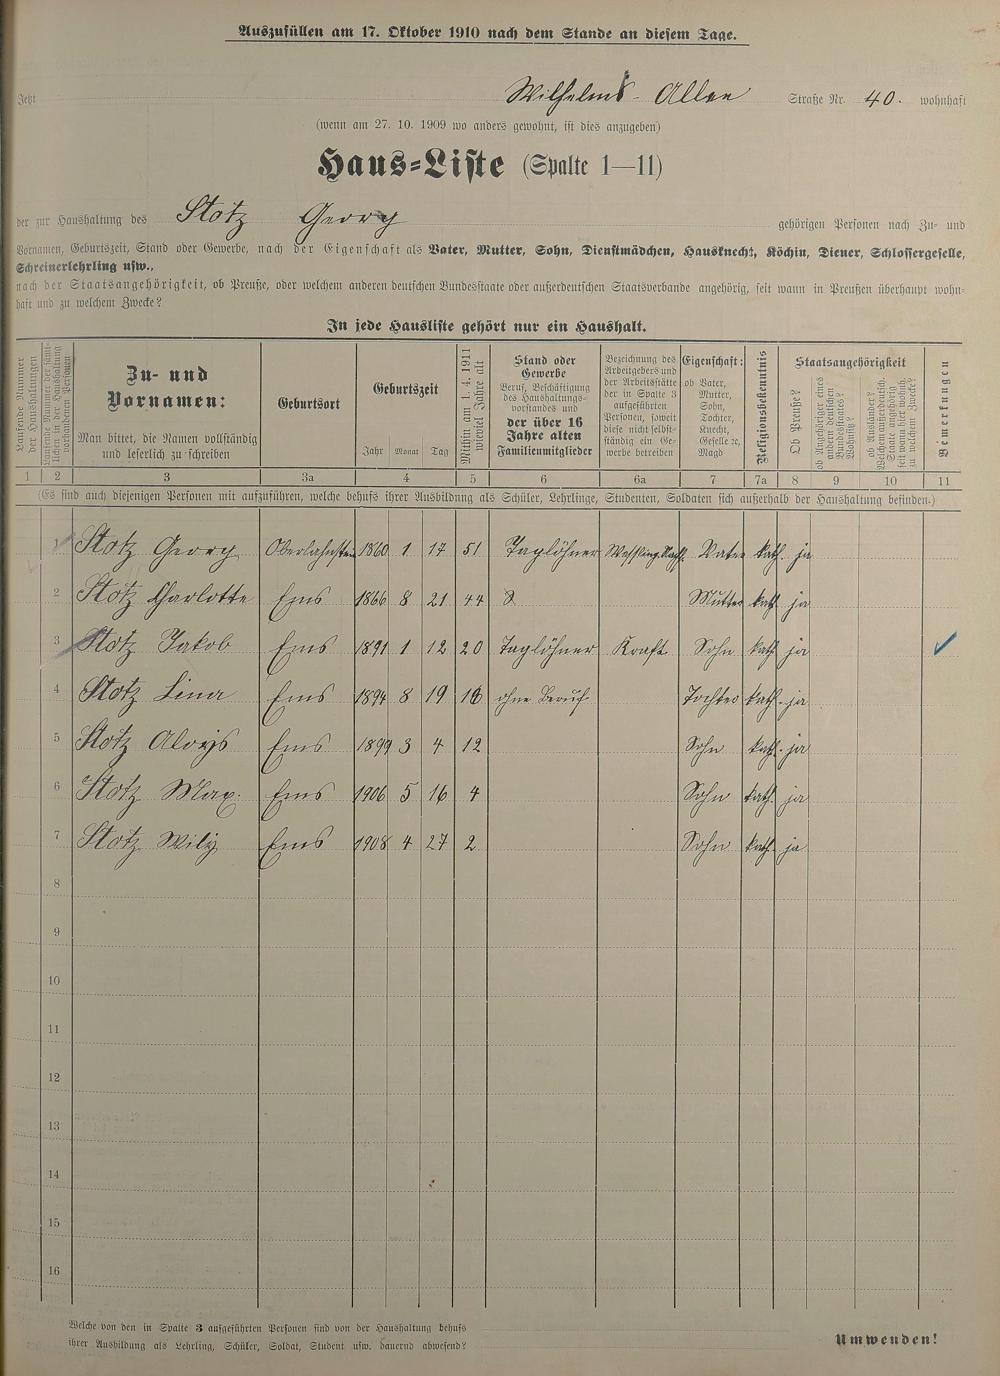 Auszufüllen am 17. Oktober 1910 nach dem Stande an diesem Tage.
Jetzt Wilhelms-Allee Straße Nr. 40. wohnhaft
(wenn am 27. 10. 1909 wo anders gewohnt, ist dies anzugeben)
Haus-Liste (Spalte 1—11)
der zur Haushaltung des Stotz Georg gehörigen Personen nach Zu- und
Vornamen, Geburtszeit, Stand oder Gewerbe, nach der Eigenschaft als Vater, Mutter, Sohn, Dienstmädchen, Hausknecht, Köchin, Diener, Schlossergeselle,
Schreinerlehrling usw.,
nach der Staatsangehörigkeit, ob Preuße, oder welchem anderen deutschen Bundesstaate oder außerdeutschen Staatsverbande angehörig, seit wann in Preußen überhaupt wohn-
haft und zu welchem Zwecke?
In jede Hausliste gehört nur ein Haushalt.
Laufende Nummer
der Haushaltungen
Laufende Nummer der sämt-
lichen in der Haushaltung
vorhandenen Personen
Zu- und
Vornamen:
Man bittet, die Namen vollständig
und leserlich zu schreiben
Geburtsort
Geburtszeit
Jahr Monat Tag
Mithin am 1. 4. 1911
wieviel Jahre alt
Stand oder
Gewerbe
Beruf, Beschäftigung
des Haushaltungs-
vorstandes und
der über 16
Jahre alten
Familienmitglieder
Bezeichnung des
Arbeitgebers und
der Arbeitsstätte
der in Spalte 3
aufgeführten
Personen, soweit
diese nicht selbst-
ständig ein Ge-
werbe betreiben
Eigenschaft:
ob Vater,
Mutter,
Sohn,
Tochter,
Knecht,
Geselle ꝛc,
Magd
Religionsbekenntnis
Staatsangehörigkeit
Ob Preuße?
ob Angehöriger eines
andern deutschen
Bundesstaates?
Wohnsitz?
ob Ausländer?
Welchem außerdeutsch.
Staate angehörig
seit wann hier wohnh.
zu welchem Zwecke?
Bemerkungen
1 2 3 3a 4 5 6 6a 7 7a 8 9 10 11
(Es sind auch diejenigen Personen mit aufzuführen, welche behufs ihrer Ausbildung als Schüler, Lehrlinge, Studenten, Soldaten sich außerhalb der Haushaltung befinden.)
1 Stotz Georg Oberlahnstein 1860 1 17 51 Taglöhner Vater kath. ja
2 Stotz Charlotte Ems 1866 8 21 44 Mutter kath ja
3 Stotz Jakob Ems 1891 1 12 20 Taglöhner Kraft Sohn kath ja
4 Stotz Lina Ems 1894 8 19 16 ohne Beruf Tochter kath. ja
5 Stotz Aloys Ems 1899 3 4 12 Sohn kath. ja
6 Stotz Max. Ems 1906 5 16 4 Sohn kath. ja
7 Stotz Wily Ems 1908 4 27 2 Sohn kath. ja
8
9
10
11
12
13
14
15
16
Welche von den in Spalte 3 aufgeführten Personen sind von der Haushaltung behufs
ihrer Ausbildung als Lehrling, Schüler, Soldat, Student usw. dauernd abwesend?
Umwenden!